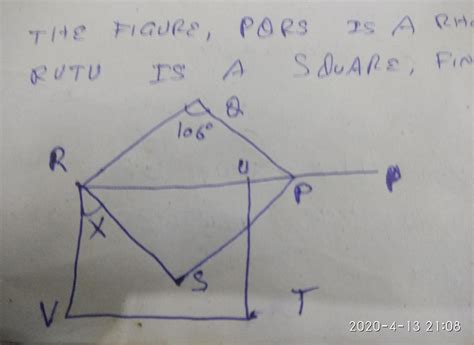 THE FIGURE, PQRS IS A RH
RUTU IS A SQUARE, FIN
Q
106°
R
U
P
P
X
S
V
T
2020-4-13 21:08